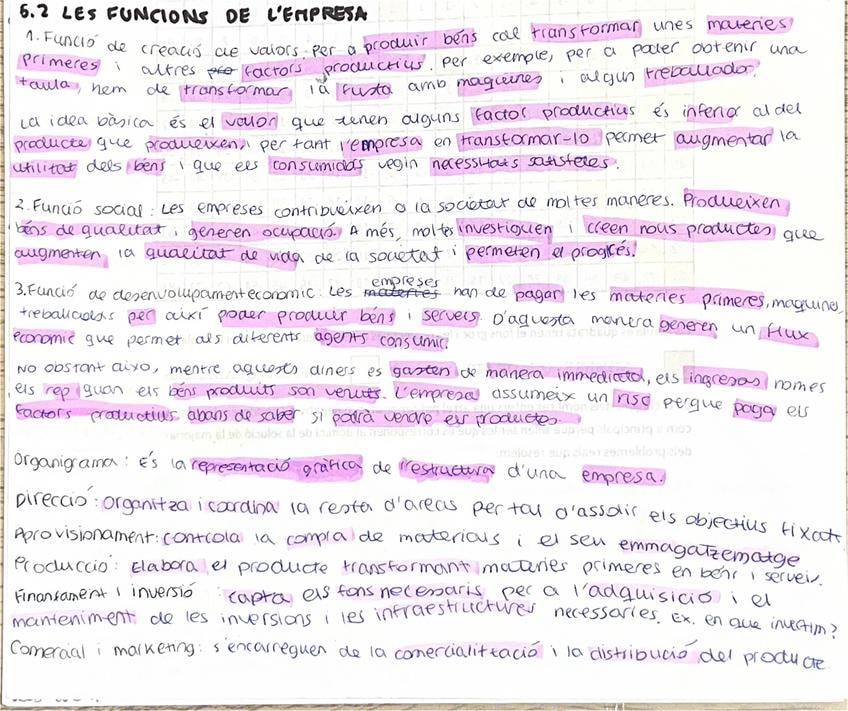 5.2 LES FUNCIONS DE L'EMPRESA
1. Funció de creació de valors. Per a produir béns cal transformar unes materies
primeres i altres factors productius. Per exemple, per a poder obtenir una
taula, hem de transformar la fusta amb maquines i algun treballador.
La idea bàsica és el valor que tenen alguns factor productius és inferior al del
producte que produeixen, per tant l'empresa en transformar-lo permet augmentar la
utilitat dels béns i que els consumidos vegin necessitats satisfetes.
2. Funció social: Les empreses contribueixen a la societat de moltes maneres. Produeixen
béns de qualitat i generen ocupació. A més, moltes investiguen i creen nous productes que
augmenten la qualitat de vida de la societat i permeten el progrés.
empreses
3. Funció de desenvolupament economic: Les materies han de pagar les materies primeres, maquines,
treballadors per així poder produir béns i serveis. D'aquesta manera generen un flux
economic que permet als diferents agents consumir.
No obstant aixo, mentre aquests diners es gasten de manera immediata, els ingresos nomes
els rep quan els béns produits son venuts. L'empresa assumeix un risc perque paga els
factors productius abans de saber si podrà vendre els productes.
Organigrama: És la representació gràfica de l'estructura d'una empresa.
Direcció: Organitza i coordina la resta d'areas per tal d'assolir els objectius fixats
Aprovisionament: controla la compra de materials i el seu emmagatzematge
Producció: Elabora el producte transformant materies primeres en béns i serveis.
Finansament i inversió: capta els fons necessaris per a l'adquisició i el
manteniment de les inversions i les infraestructures necessaries. Ex. en que invertim?
Comercial i marketing: s'encarreguen de la comercialització i la distribució del producte